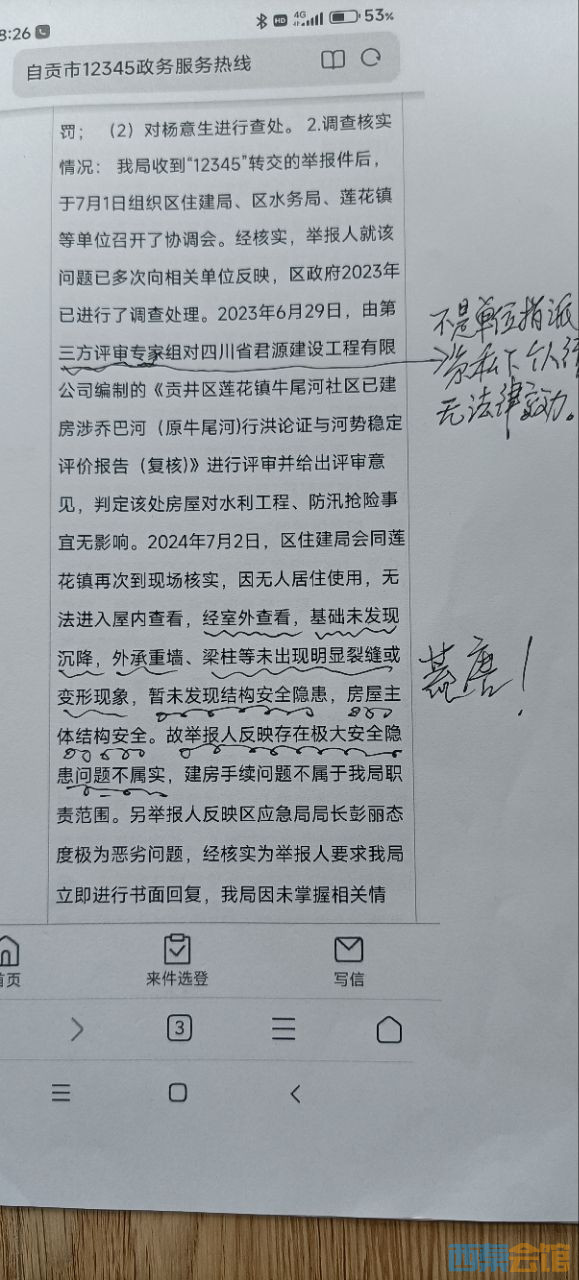 8:26
4G
HD
53%
自贡市12345政务服务热线
罚；（2）对杨意生进行查处。2.调查核实
情况：我局收到“12345”转交的举报件后，
于7月1日组织区住建局、区水务局、莲花镇
等单位召开了协调会。经核实，举报人就该
问题已多次向相关单位反映，区政府2023年
已进行了调查处理。2023年6月29日，由第
三方评审专家组对四川省君源建设工程有限
公司编制的《贡井区莲花镇牛尾河社区已建
房涉乔巴河（原牛尾河)行洪论证与河势稳定
评价报告（复核)》进行评审并给出评审意
见，判定该处房屋对水利工程、防汛抢险事
宜无影响。2024年7月2日，区住建局会同莲
花镇再次到现场核实，因无人居住使用，无
法进入屋内查看，经室外查看，基础未发现
沉降，外承重墙、梁柱等未出现明显裂缝或
变形现象，暂未发现结构安全隐患，房屋主
体结构安全。故举报人反映存在极大安全隐
患问题不属实，建房手续问题不属于我局职
责范围。另举报人反映区应急局局长彭丽态
度极为恶劣问题，经核实为举报人要求我局
立即进行书面回复，我局因未掌握相关情
不是单位指派
私下个人
无法律效力。
荒唐！
首页
来件选登
写信
3
西秦会馆